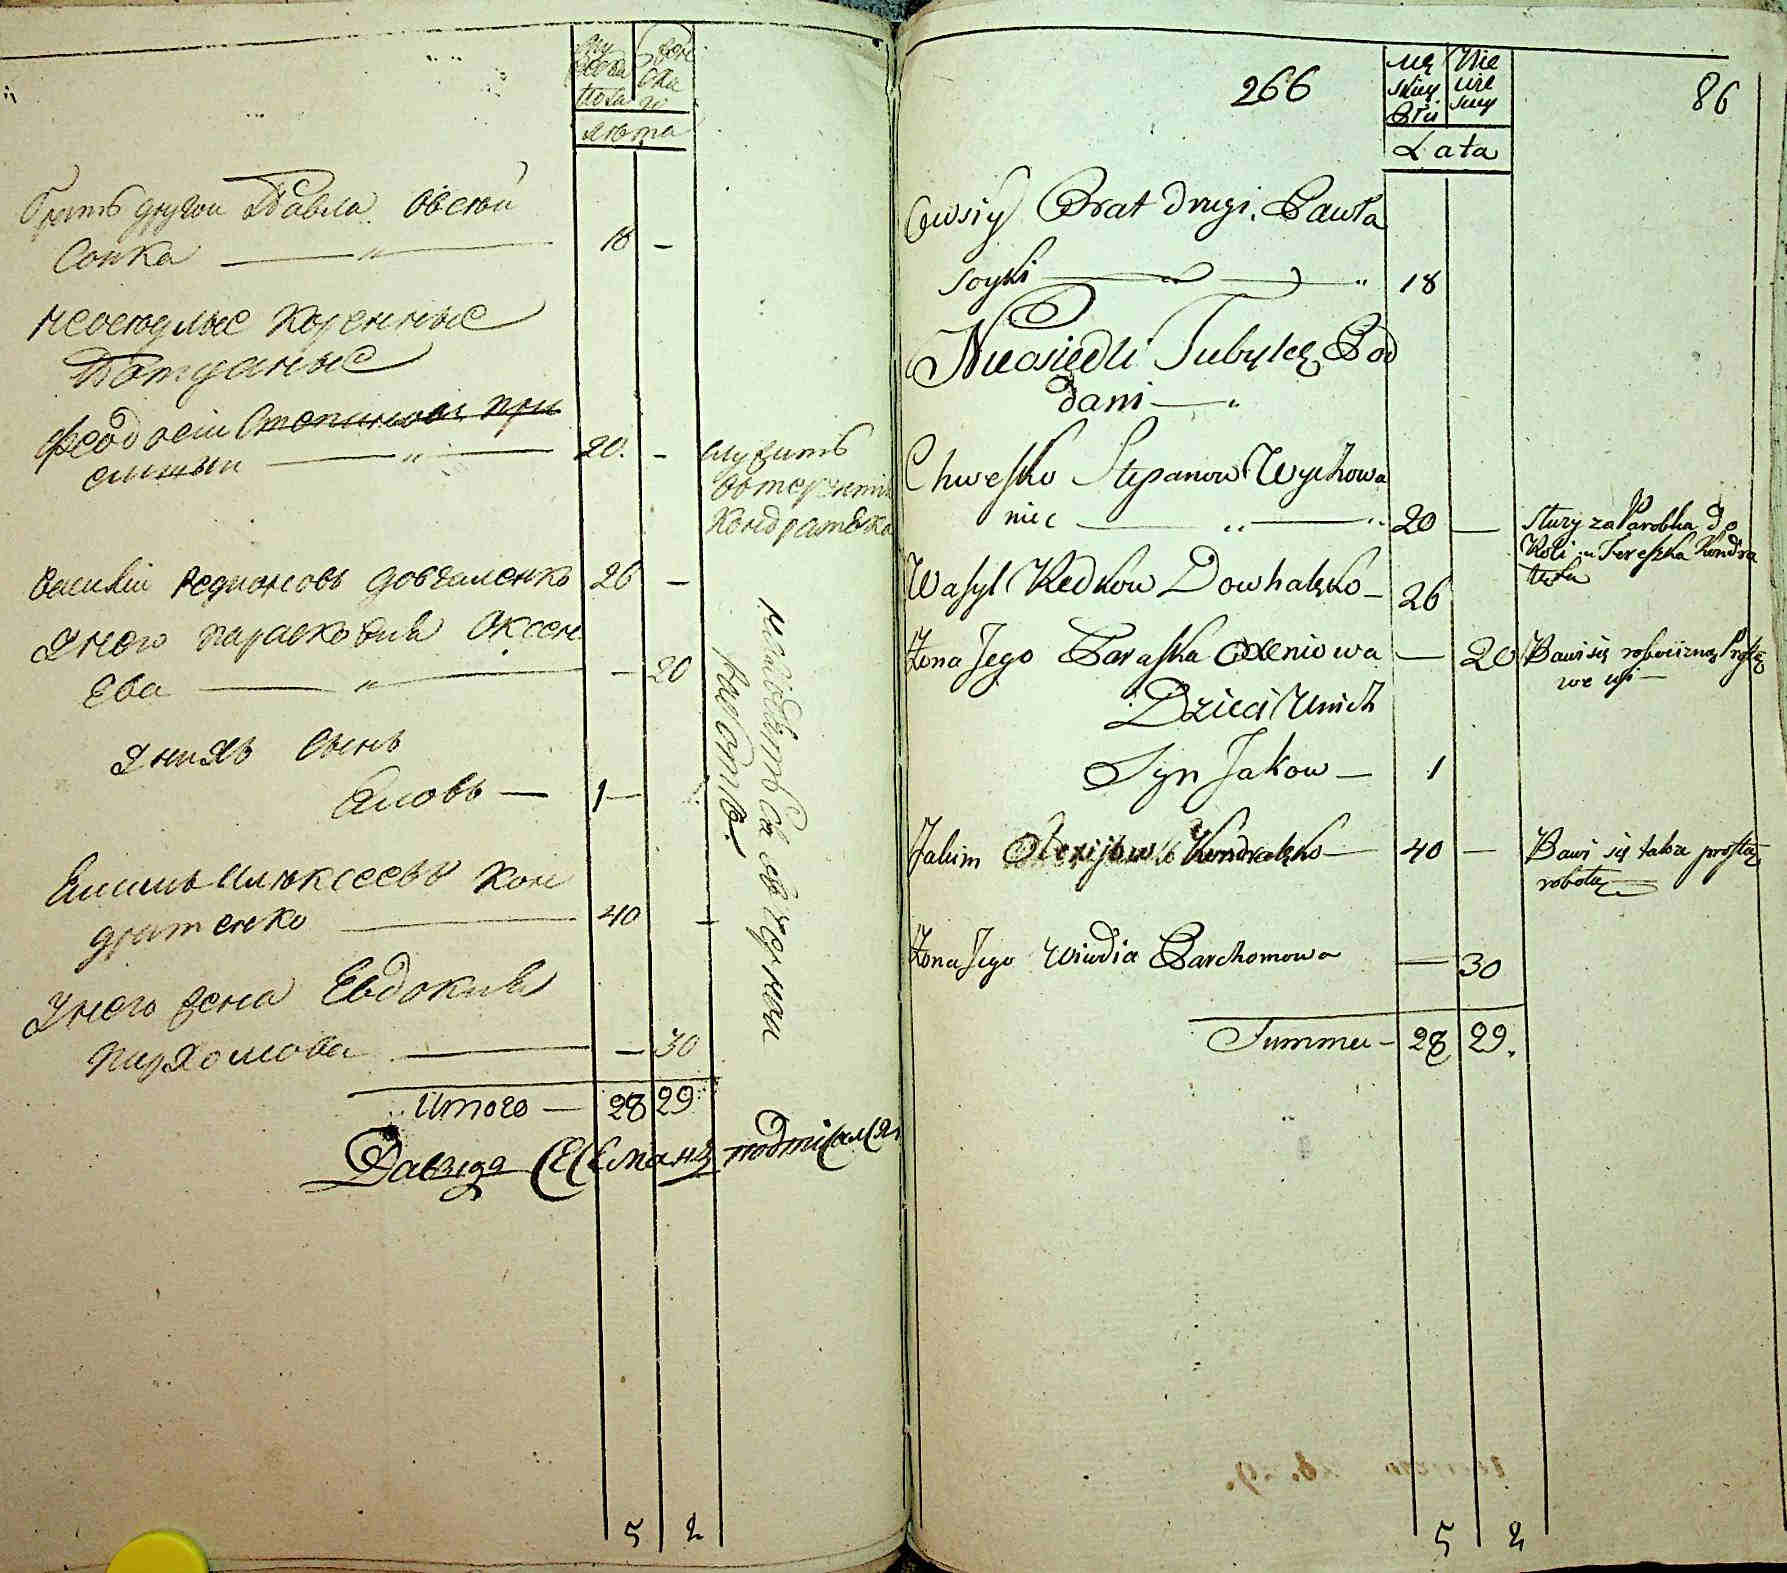 Братъ другои Павла Овсѣй
Сойка — „ — 18 —
Неосѣдлые коренные
Подданые
Феодосій Степановъ при
емышъ — „ — 20. — служитъ
Кондратенка
Василій Редкововъ Довгаленко 26 —
У него Парасковія Оксен
ева — „ — — 20
У нихъ сынъ
Яковъ — 1 —
Екимъ Алюксеевъ Кон
дратенко — 40 —
У него жена Евдокия
Пархомова — — 30
Итого — 28 29
Давыдъ подписался
5 2
266
86
Mę skiey Płci
Nie wie sciey
Lata
Owsiy Brat drugi Pawła
Soyki — „ 18
Nieosiedli Tubylcy Pod
dani — „
Chwesko Stepanow Wychowa
niec — „ — „ 20 — służy za Parobka do
Roli u Tereszka Kondra
tenka
Wasyl Redkow Dowhalenko — 26
Żona Jego Paraska Oxeniowa — 20 Bawi się robocizną Prostą
we wsi —
Dzieci U nich
Syn Jakow — 1
Jakim Olexijow Kondratenko — 40 — Bawi się także prostą
robotą
Żona Jego Wiwdia Parchomowa — 30
Summa — 28 29.
5 2